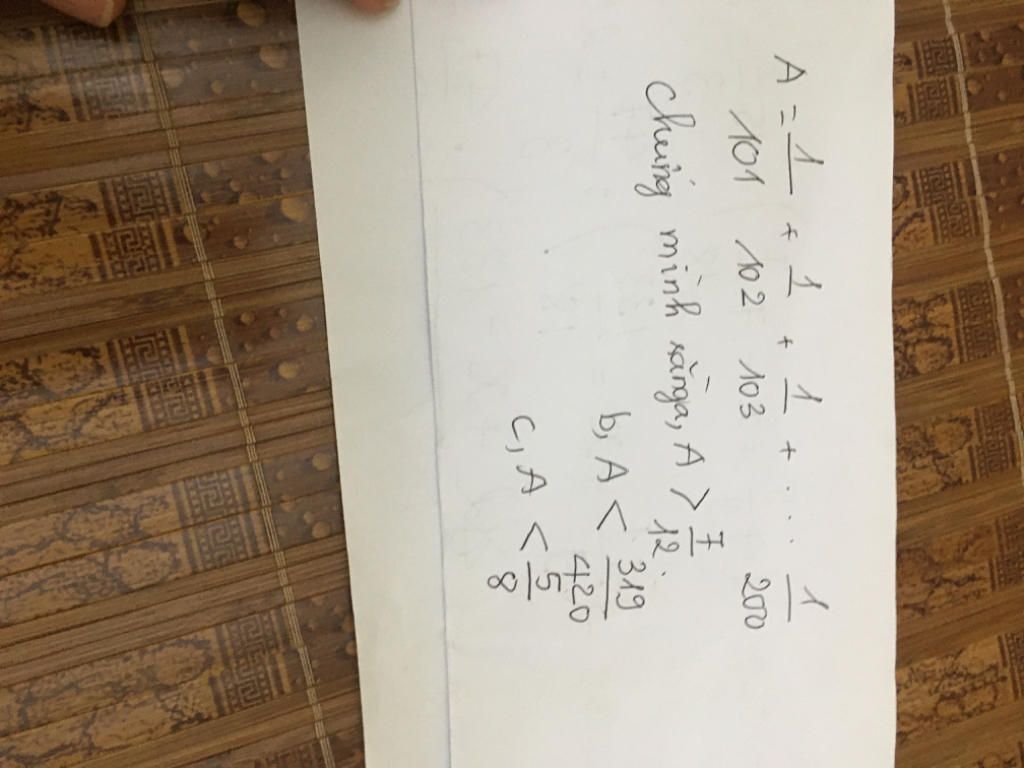 A = 1/101 + 1/102 + 1/103 + ... 1/200
Chứng minh rằng a, A > 7/12
b, A < 319/420
c, A < 5/8